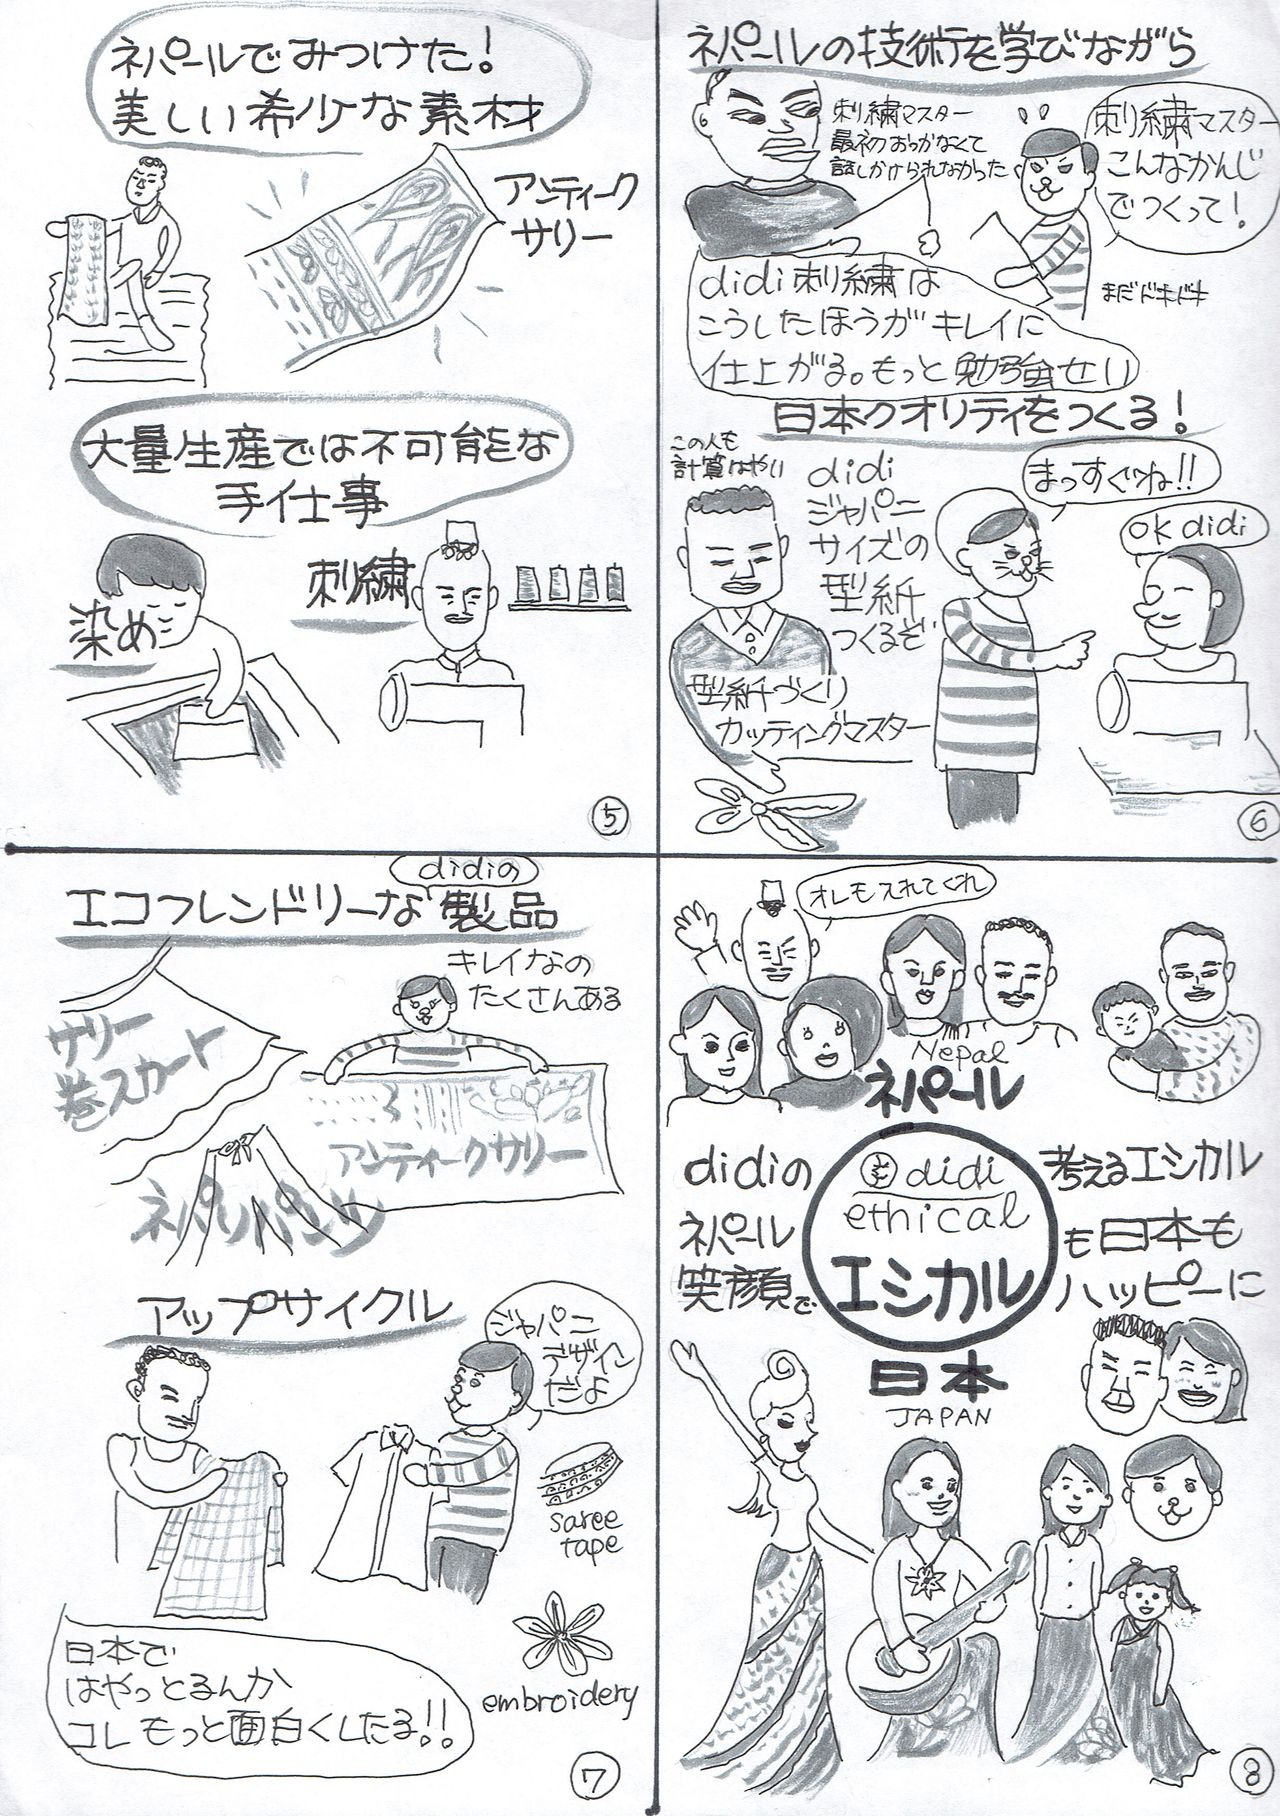 ネパールでみつけた！
美しい希少な素材
アンティーク
サリー
大量生産では不可能な
手仕事
染め
刺繍
⑤
ネパールの技術を学びながら
刺繍マスター
最初おっかなくて
話しかけられなかった
刺繍マスター
こんなかんじ
でつくって！
まだドキドキ
didi刺繍は
こうしたほうがキレイに
仕上がる。もっと勉強せい
日本クオリティをつくる！
この人も
計算はやい
didi
ジャパニ
サイズの
型紙
つくるぞ
まっすぐね!!
OK didi
型紙づくり
カッティングマスター
⑥
didiの
エコフレンドリーな製品
キレイなの
たくさんある
サリー
巻スカート
アンティークサリー
ネパリパンツ
アップサイクル
ジャパニ
デザイン
だよ
saree
tape
embroidery
日本で
はやっとるんか
コレもっと面白くしたる!!
⑦
オレも入れてくれ
Nepal
ネパール
didiの
didi
考えるエシカル
ethical
ネパール
も日本も
エシカル
笑顔で
ハッピーに
日本
JAPAN
⑧